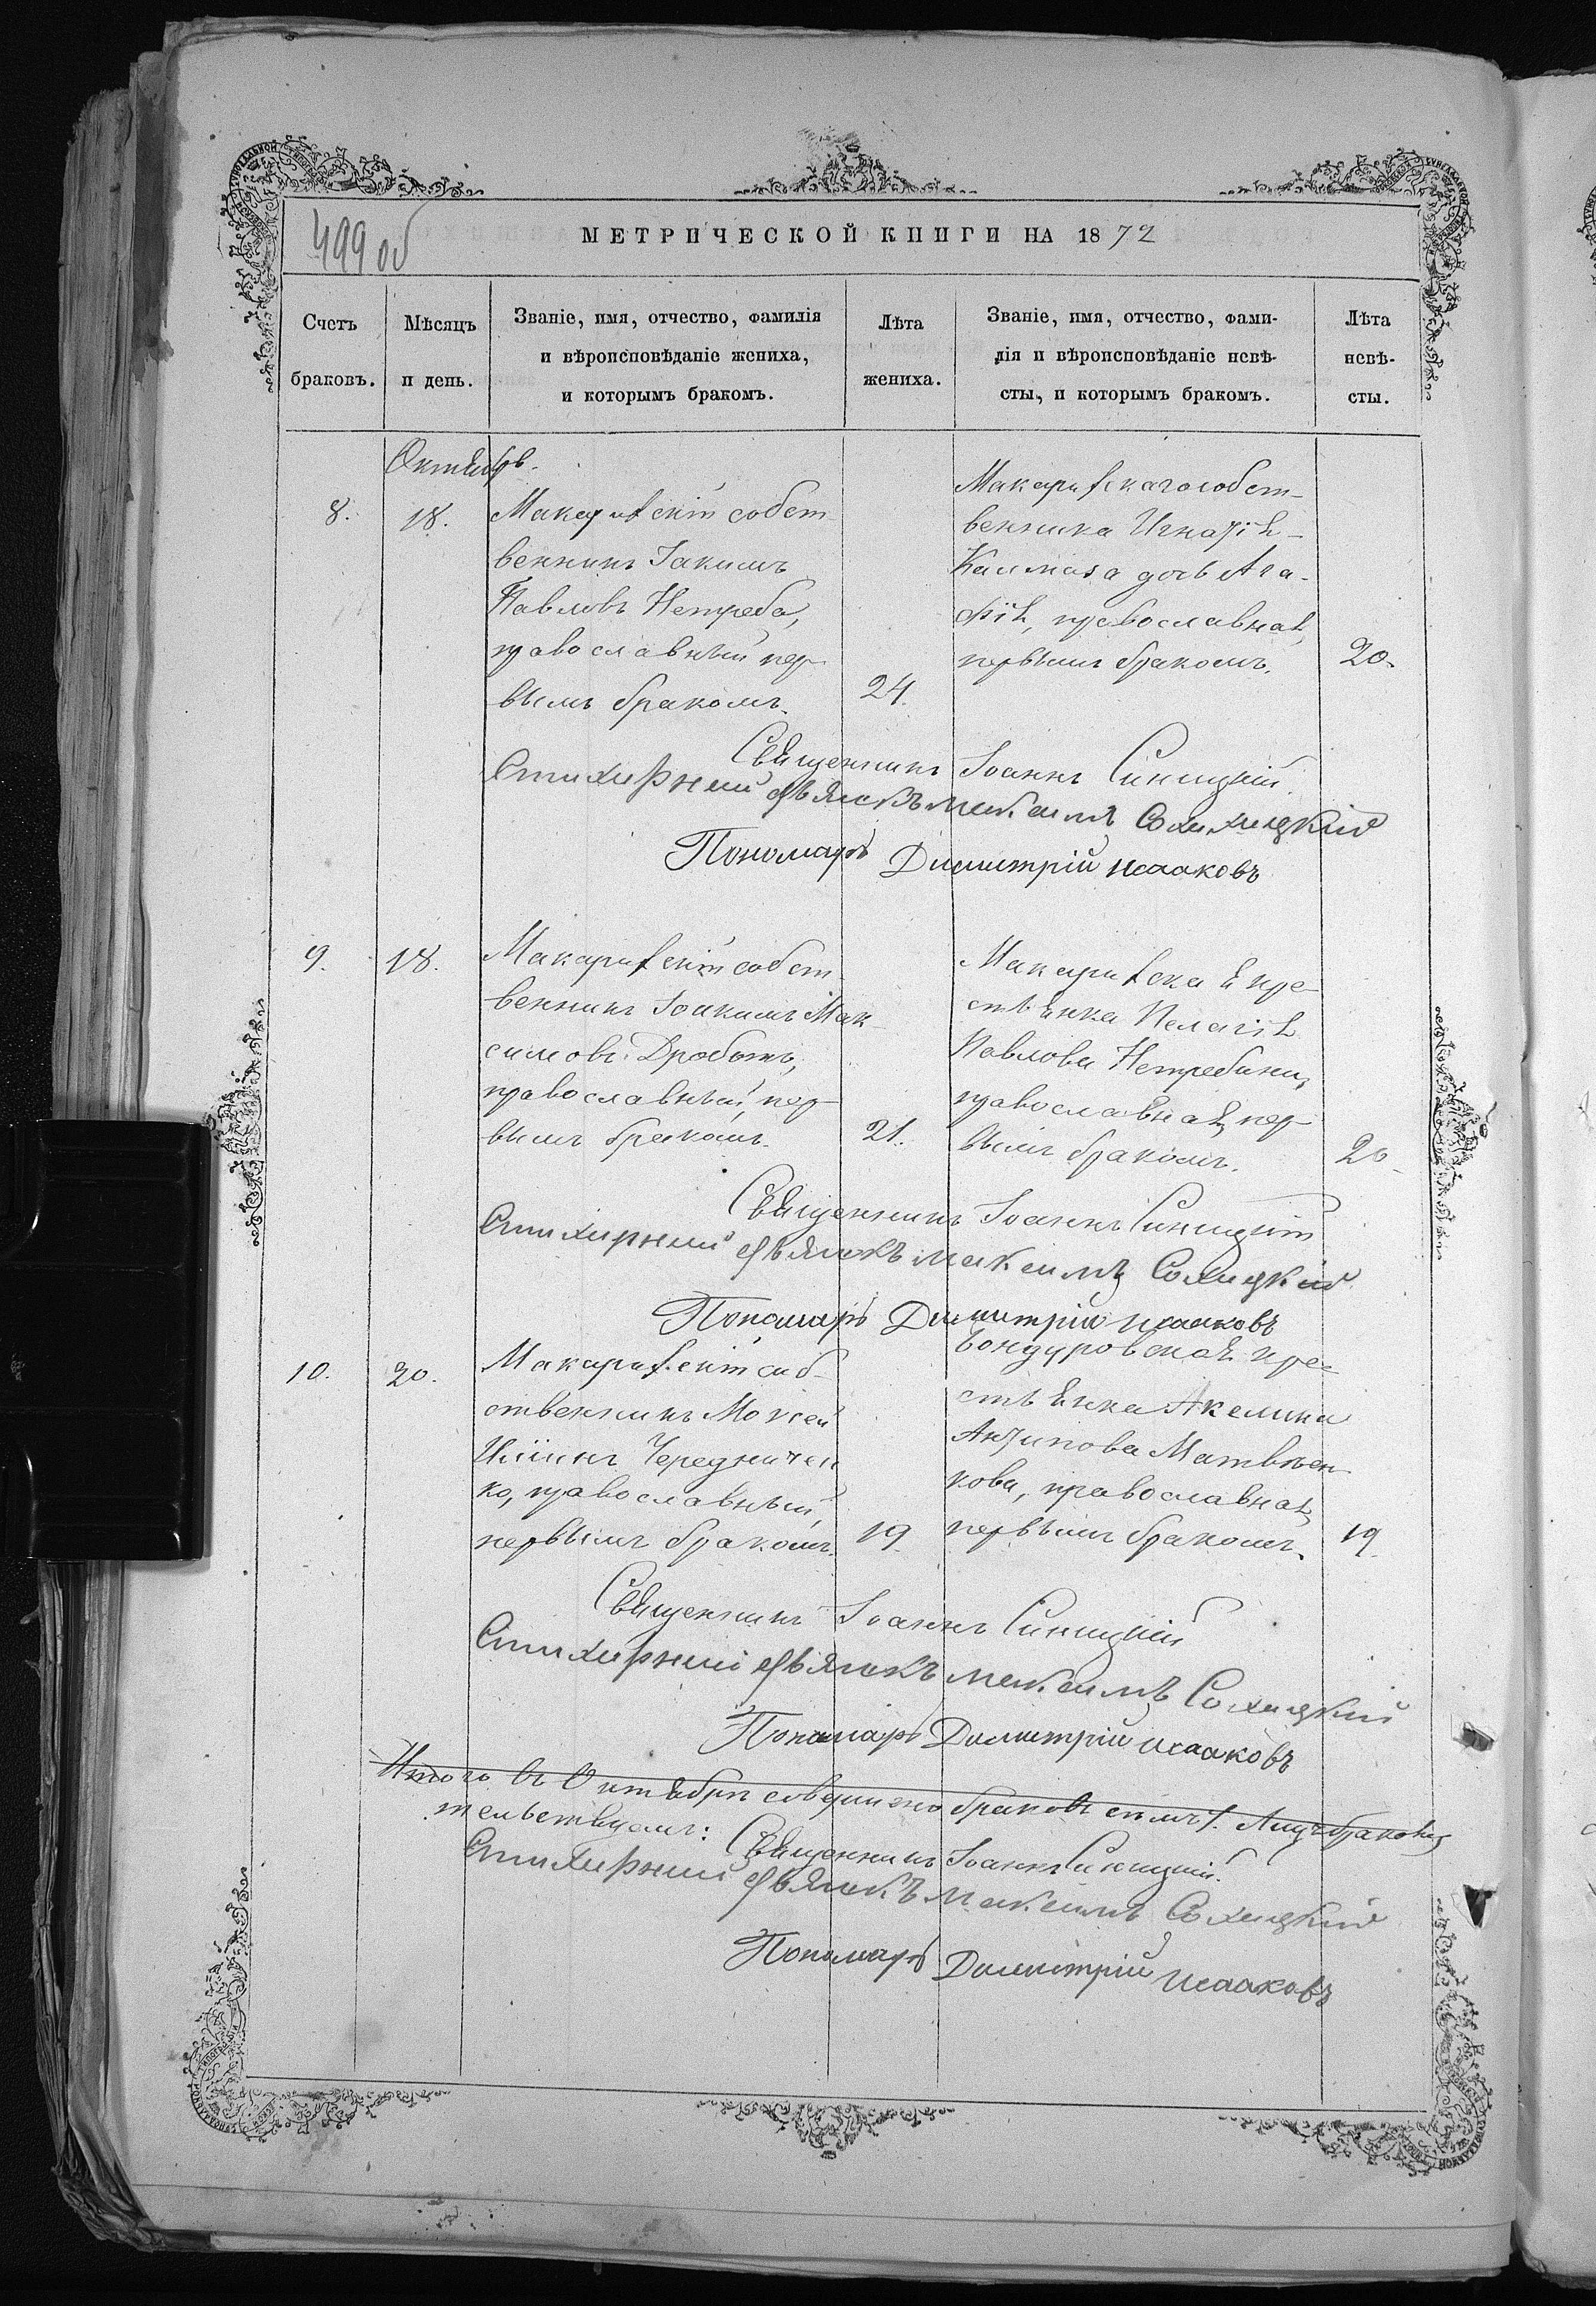 499 об
МЕТРИЧЕСКОЙ КНИГИ НА 1872
Счетъ
браковъ.
Мѣсяцъ
и день.
Званіе, имя, отчество, фамилія
и вѣроисповѣданіе жениха,
и которымъ бракомъ.
Лѣта
жениха.
Званіе, имя, отчество, фами-
лія и вѣроисповѣданіе невѣ-
сты, и которымъ бракомъ.
Лѣта
невѣ-
сты.
Октябрь.
8.
18.
Макаривскій собст-
венникъ Іакимъ
Павловъ Нетреба,
православный пер-
вымъ бракомъ.
24.
Макаривскаго собст-
венника Игнатія
Калмаза дочь Ага-
фія, православная,
первымъ бракомъ.
20.
Священникъ Іоаннъ Синицкій.
Стихирный дьячекъ Максимъ
Пономарь Димитрій Исааковъ
9.
18.
Макаривскій собст-
венникъ Іоакимъ Мак-
симовъ Дроботъ,
православный, пер-
вымъ бракомъ.
21.
Макаривская кре-
стьянка Пелагія
Павлова Нетребина,
православная, пер-
вымъ бракомъ.
20.
Священникъ Іоаннъ Синицкій
Стихирный дьячекъ Максимъ
Пономарь Димитрій Исааковъ
10.
20.
Макаривскій соб-
ственникъ Моѵсей
Ильинъ Чередничен-
ко, православный,
первымъ бракомъ.
19.
Бондуровская кре-
стьянка Акелина
Антипова Матвѣен-
кова, православная,
первымъ бракомъ.
19.
Священникъ Іоаннъ Синицкій
Стихирный дьячекъ Максимъ
Пономарь Димитрій Исааковъ
Итого въ Октябрѣ совершено браковъ
тельствуемъ: Священникъ Іоаннъ Синицкій.
Стихирный дьячекъ Максимъ
Пономарь Димитрій Исааковъ